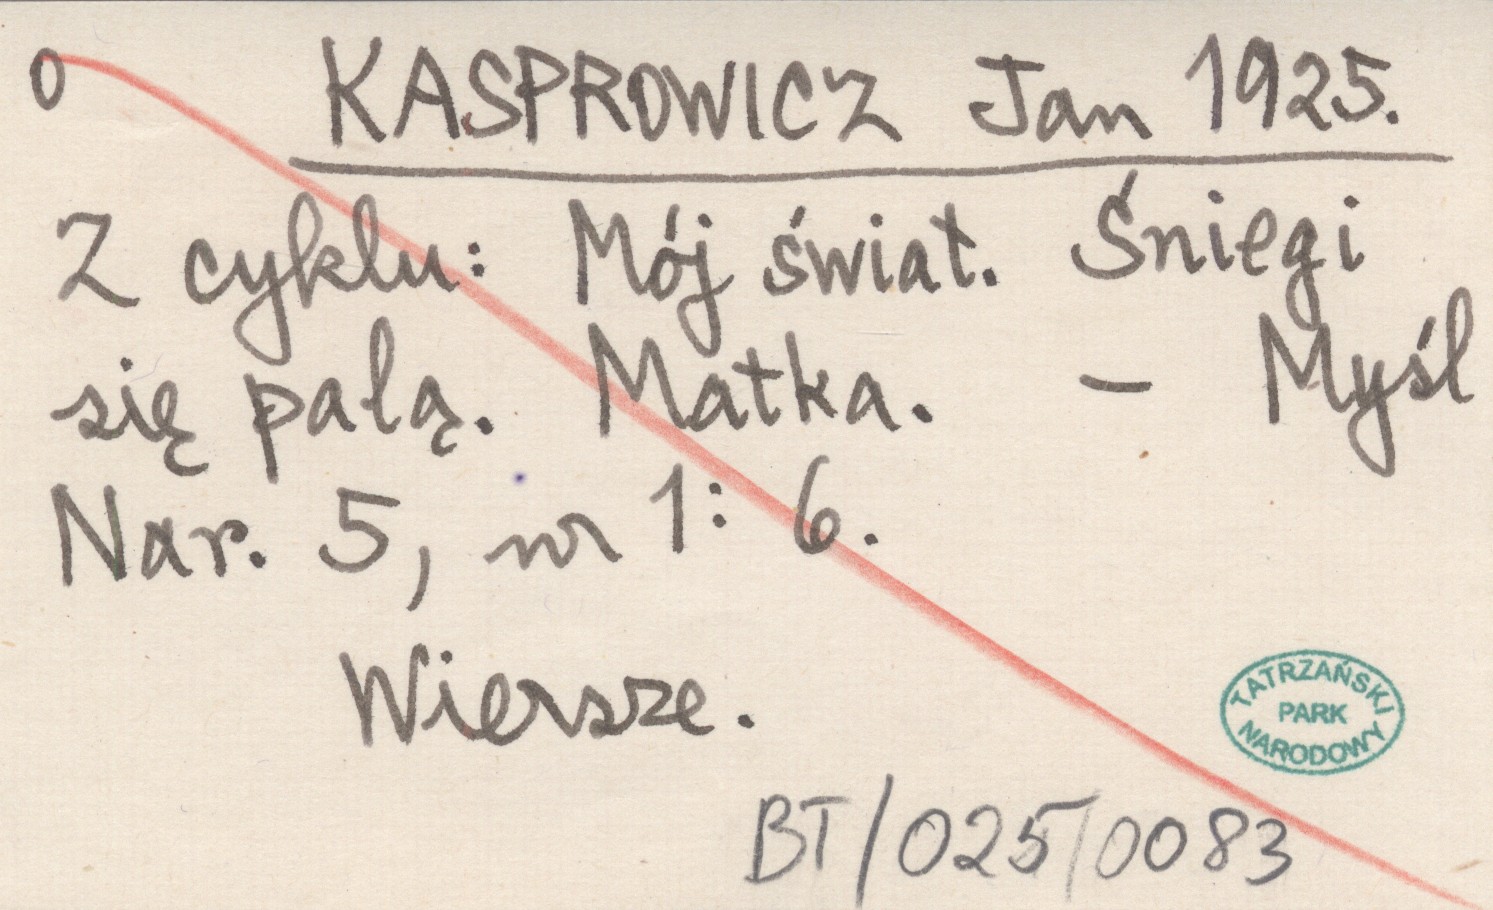 0 KASPROWICZ Jan 1925.
Z cyklu: Mój świat. Śniegi
się palą. Matka. – Myśl
Nar. 5, nr 1: 6.
Wiersze.
TATRZAŃSKI
PARK
NARODOWY
BT/025/0083